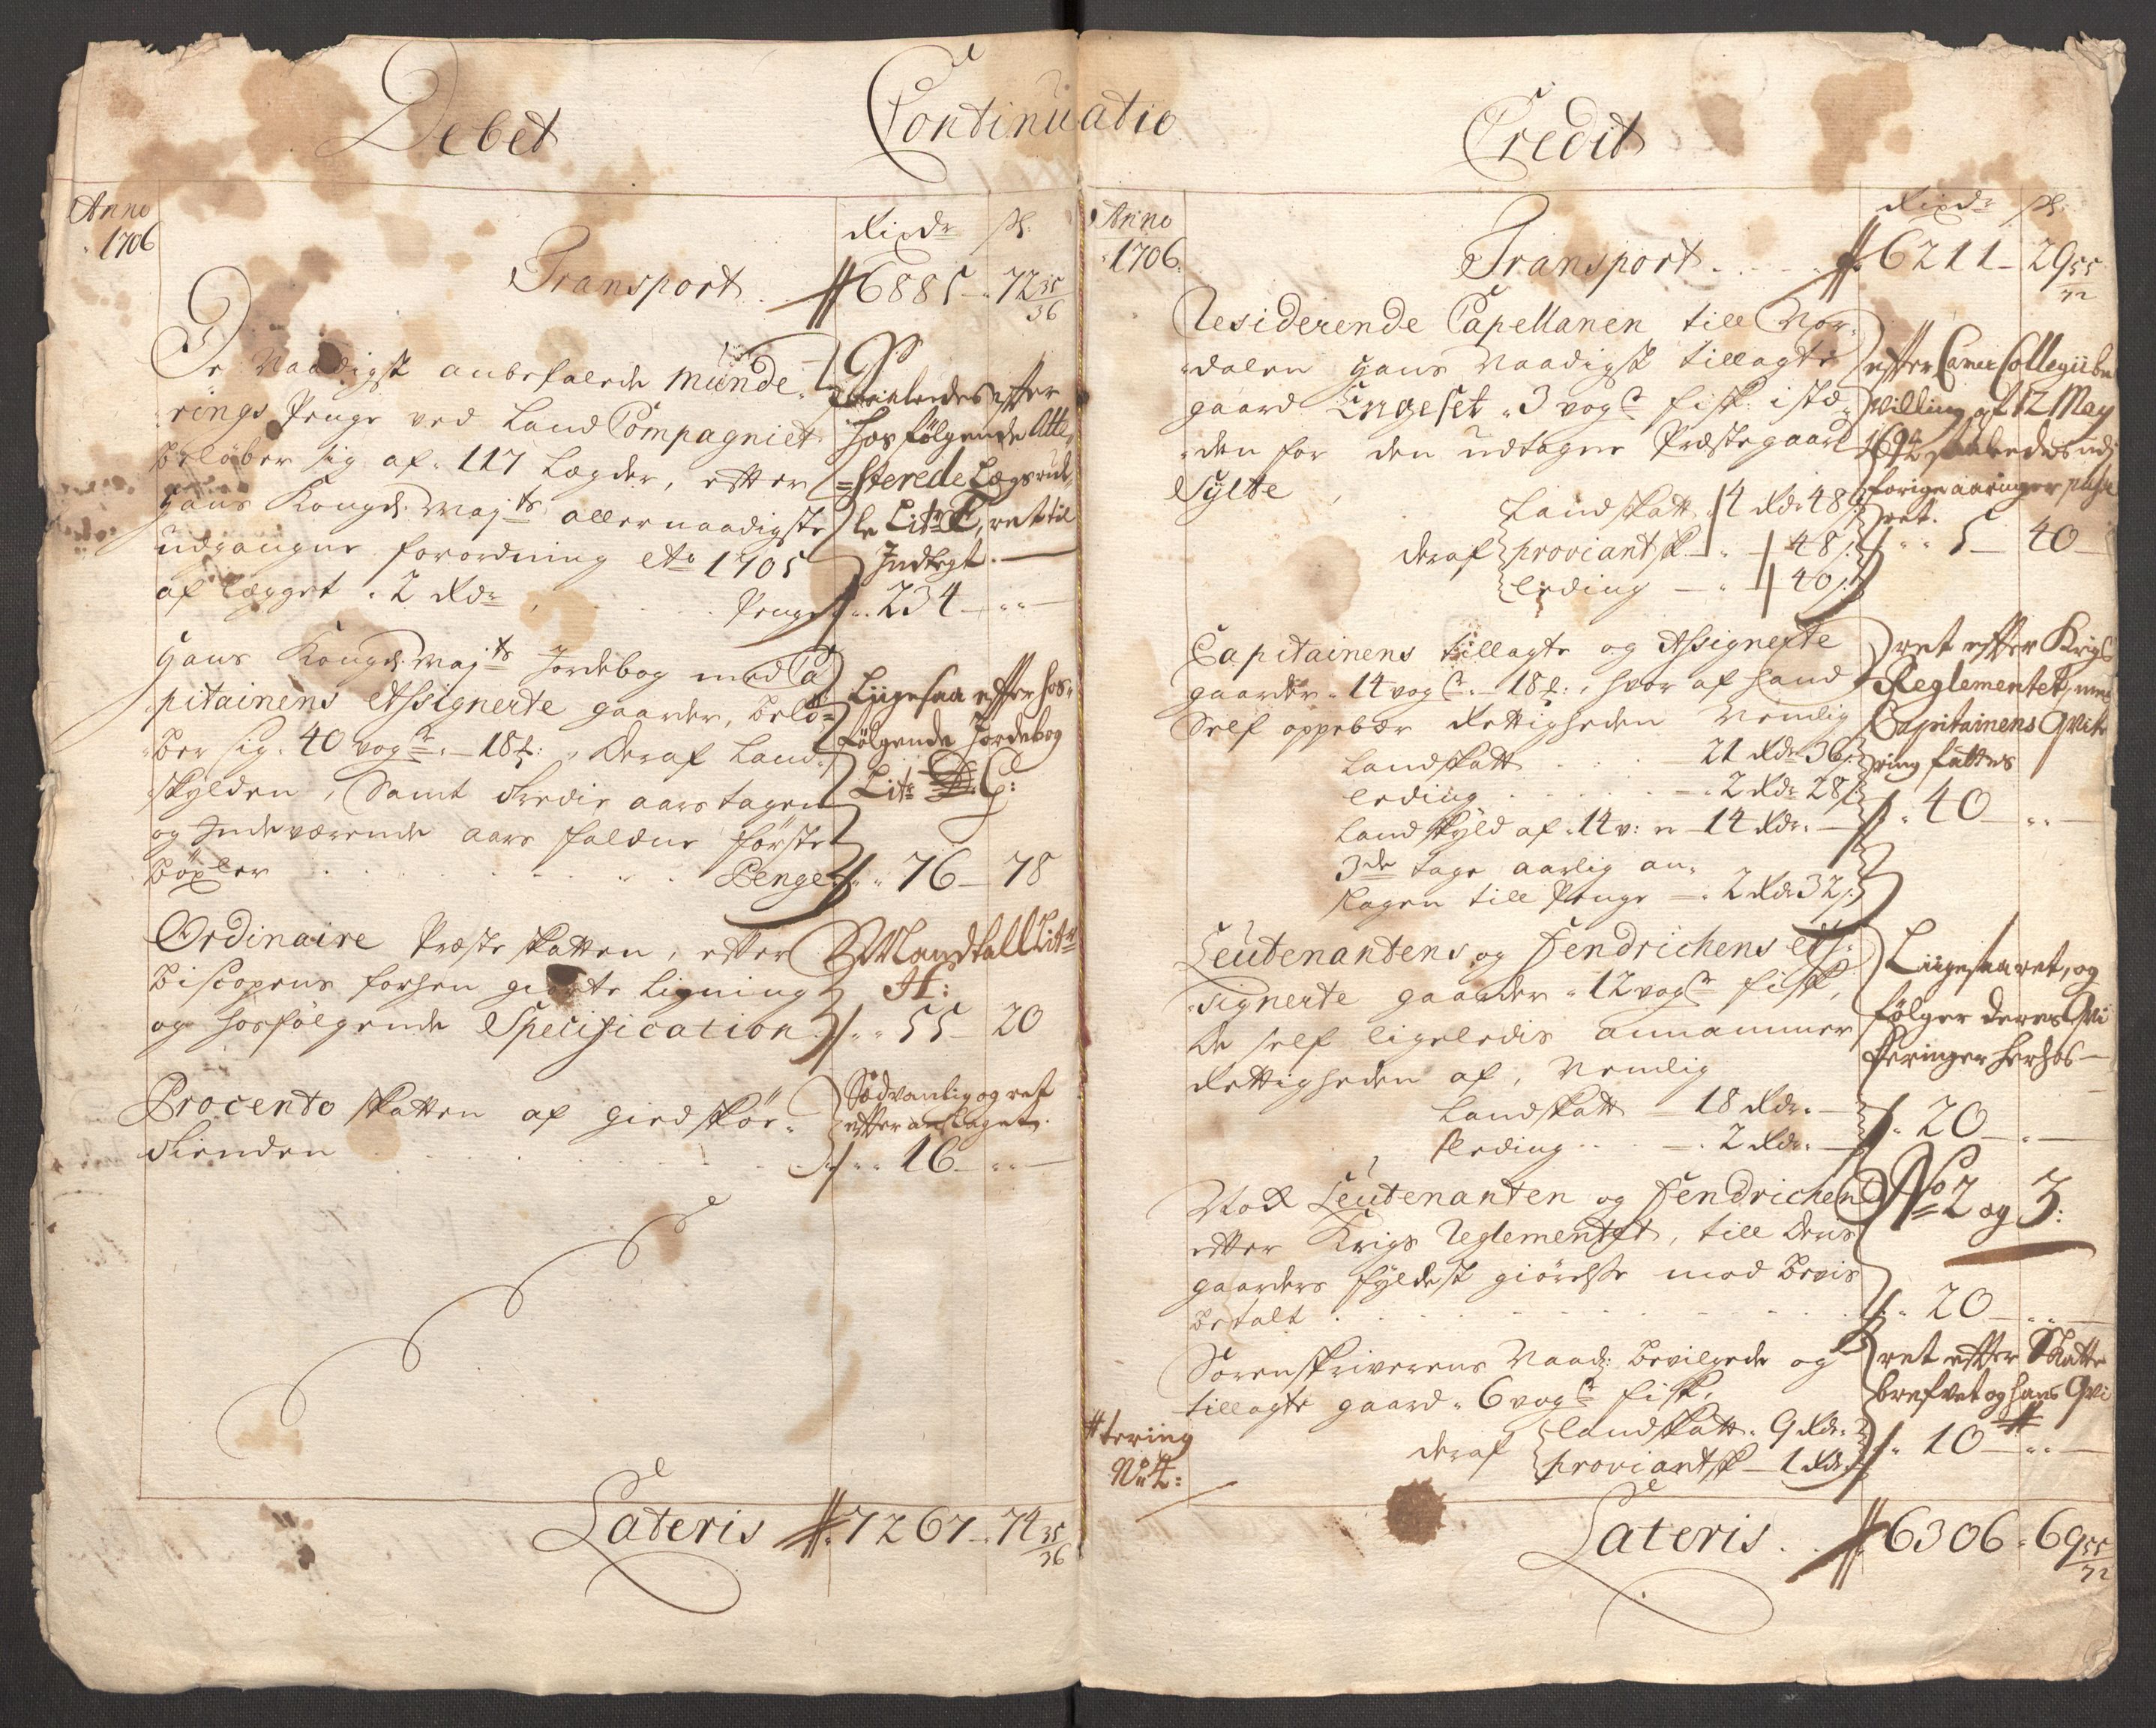 Debet
Continuatio
Credit
Anno
1706
Rixdr sk.
Transport # 6885 – 72 35/36
De Naadigst anbefalede Munde-
rings Penge ved Land Compagniet
beløber sig af 117 Lægder, efter
Hans Kongl. May:ts allernaadigste
udgangne forordning Ao 1705
af Lægget 2 Rdr Penge
ligeledes efter
hosfølgende Atte-
=sterede Lægsrul-
le Litr F, ret til
Indtegt.
234 – „ –
Hans Kongl. May:ts Jordebog med Ca-
pitainens Assignerte gaarder, belø-
ber sig 40 vogr – 18 ℔: Deraf Land-
skylden, Samt tredie aars tagen
og Indeværende aars faldne første
bøxler Penge
Liigesaa efter hos-
følgende Jordebog
Litr G:
76 – 78
Ordinaire Præste skatten, efter
Biscopens forhen giorte Ligning
og hosfølgende Specification
Mandtall Litr
H:
55 – 20
Procento skatten af Giedskør-
tienden
Sædvanlig og ret
efter anslaget.
16 – „ –
Lateris # 7267 – 74 35/36
Anno
1706
Rixdr sk.
Transport # 6211 – 29 55/72
Residerende Capellanen till Nor-
dalen Hans Naadigst tillagte
gaard Engeset 3 vogr fisk istæ-
den for den udtagne Præstegaard
Sylte
Landskatt 4 Rdr 48
deraf proviantsk – 48
leding – 40
efter Camer Collegii be-
villing af 12 May
1694 saaledes udi
forige aaringer passe-
ret.
5 – 40 –
Capitainens tillagte og Assignerte
gaarder 14 vogr – 18 ℔:, hvor af hand
Self oppebær Rettigheden Nemlig
Landskatt 21 Rdr 36
leding 2 Rdr 28
Landskyld af 14 v: er 14 Rdr –
3de tage aarlig an-
slagen till Penge – 2 Rdr 32
ret efter Krigs
Reglementet,
Capitainens Qvite-
ring fattes
40 – „ –
Leutenantens og Fendrichens As-
signerte gaarder 12 vogr fisk,
De self ligeledis annammer
Rettigheden af, Nemlig
Landskatt – 18 Rdr –
leding – 2 Rdr –
Liigesaa ret, og
følger deres Qvi
teringer herhos –
20 – „ –
Nok Leutenanten og Fendrichen
efter Krigs Reglementet, till deris
gaarders fyldest giørelse mod bevis
betalt
No 2 og 3:
20 – „ –
Sorenskriverens Naad: bevilgede og
tillagte gaard 6 vogr fisk,
deraf landskatt 9 Rdr
proviantsk – 1 Rdr
ret efter Skatte
brefvet og hans Qvi
#
10 – „ –
# tering
No 4:
Lateris # 6306 – 69 55/72